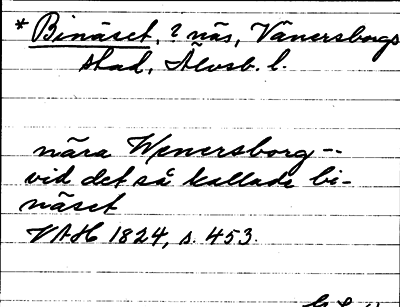 * Binäset, ? näs, Vänersborgs
stad, Älvsb. l.
nära Wenersborg --
vid det så kallade bi-
näset
VAH 1824, s. 453.